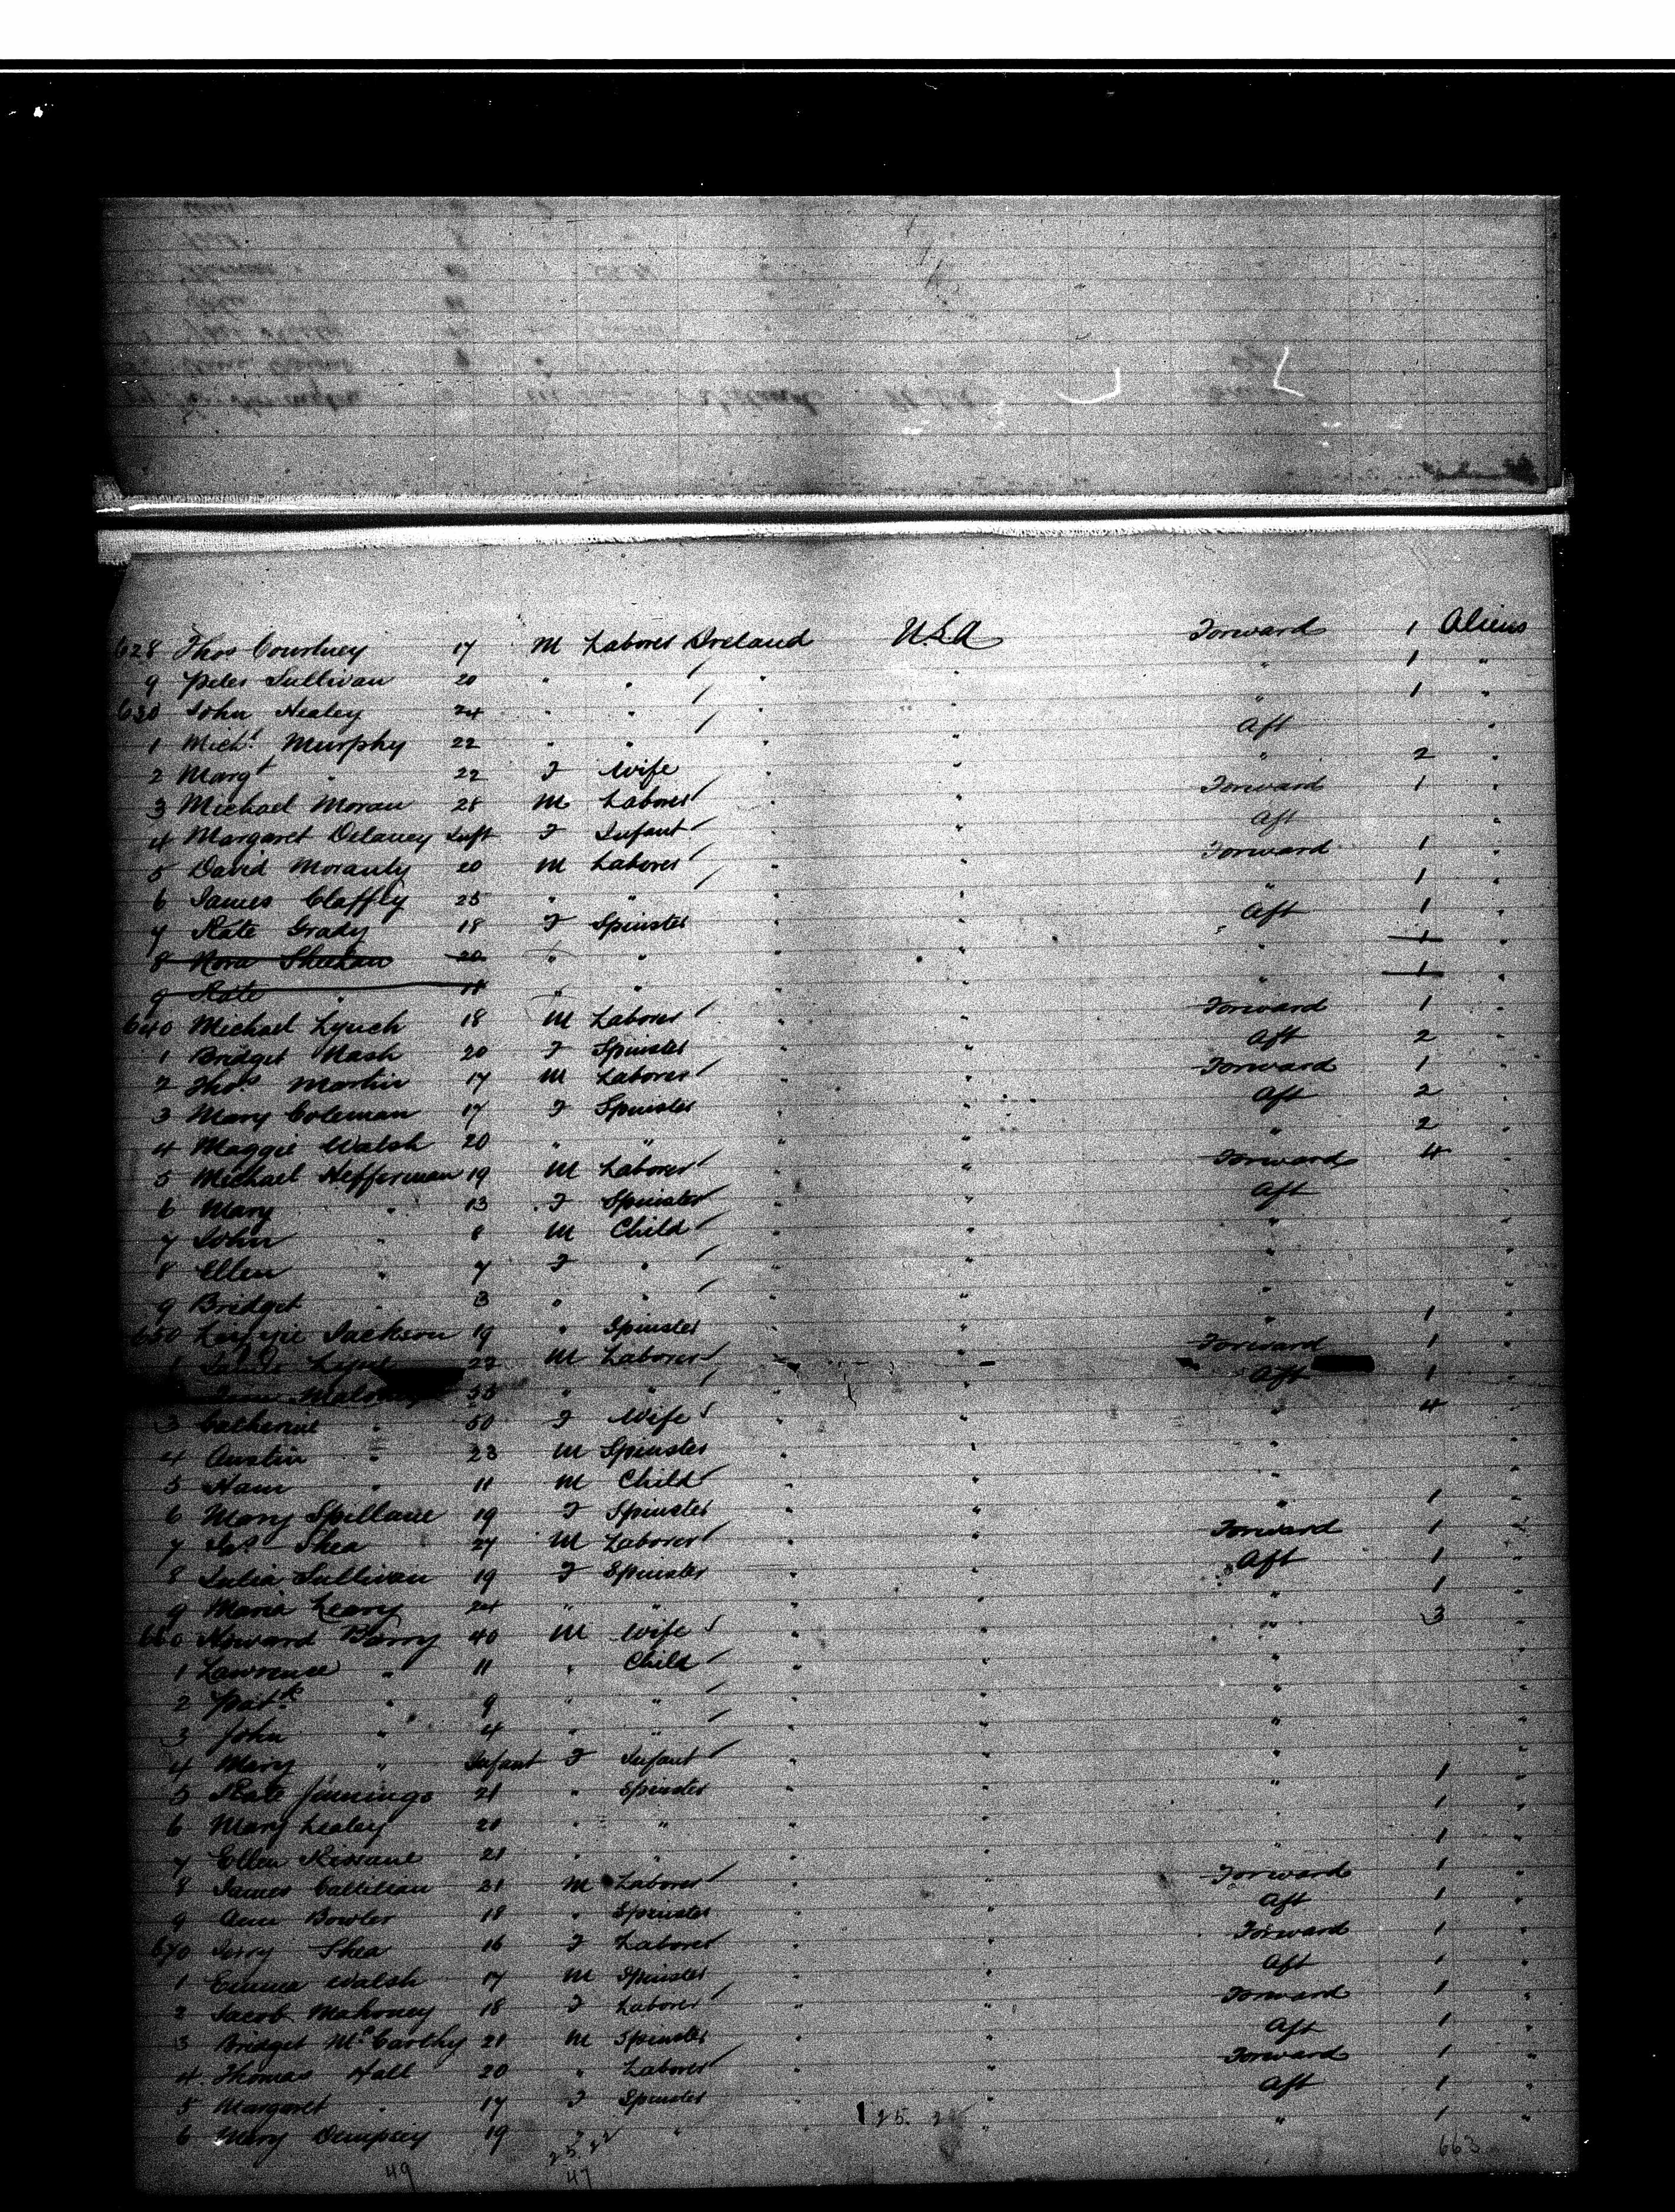 628 Thos Courtney 17 M Laborer Ireland U.S.A Forward 1 Aliens
9 Peter Sullivan 20 " " " " " 1 "
630 John Healey 24 " " " " 1 "
1 Michl Murphy 22 " " " " Aft "
2 Margt " 22 F Wife " " " 2 "
3 Michael Moran 28 M Laborer " " Forward 1 "
4 Margaret Delaney Inft F Infant " " Aft "
5 David Moranty 20 M Laborer " " Forward 1 "
6 James Claffly 25 " " " " " 1 "
7 Kate Grady 18 F Spinster " " Aft 1 "
8 Nora Sheehan 20 " " " " " 1 "
9 Kate " " " " " " 1 "
640 Michael Lynch 18 M Laborer " " Forward 1 "
1 Bridget Nash 20 F Spinster " " Aft 2 "
2 Thos Martin 17 M Laborer " " Forward 1 "
3 Mary Coleman 17 F Spinster " " Aft 2 "
4 Maggie Walsh 20 " " " " " 2 "
5 Michael Hefferman 19 M Laborer " " Forward 4 "
6 Mary " 13 F Spinster " " Aft "
7 John " 8 M Child " " " "
8 Ellen " 7 F " " " " "
9 Bridget " 3 " " " " " "
650 Jackson 19 " Spinster " " " 1 "
1 22 M Laborer " Forward 1 "
" " " " Aft 1 "
3 Catherine " 50 F Wife " " " 4 "
4 Austin " 23 M Spinster " " " "
5 " 11 M Child " " " "
6 Mary Spillane 19 F Spinster " " " 1 "
7 Shea 27 M Laborer " " Forward 1 "
8 Julia Sullivan 19 F Spinster " " Aft 1 "
9 Maria Leary 24 " " " " " 1 "
660 Howard Barry 40 M Wife " " " 3 "
1 Lawrence " 11 " Child " " " "
2 Patk " 9 " " " " " "
3 John " 4 " " " " " "
4 Mary " Infant F Infant " " " "
5 Kate Jennings 21 " Spinster " " " 1 "
6 Mary Lealey " " " " " 1 "
7 Ellen Kissane 21 " " " " " 1 "
8 James Callihan 21 M Laborer " " Forward 1 "
9 Ann Bowler 18 " Spinster " " Aft 1 "
670 Jerry Shea 16 F Laborer " " Forward 1 "
1 Emma Walsh 17 M Spinster " " Aft 1 "
2 Jacob Mahoney 18 F Laborer " " Forward 1 "
3 Bridget McCarthy 21 M Spinster " " Aft 1 "
4 Thomas Hall 20 " Laborer " " Forward 1 "
5 Margaret " 17 F Spinster " " Aft 1 "
6 Mary Dempsey 19 " " " " 1 "
25.
25 22
49 47 663